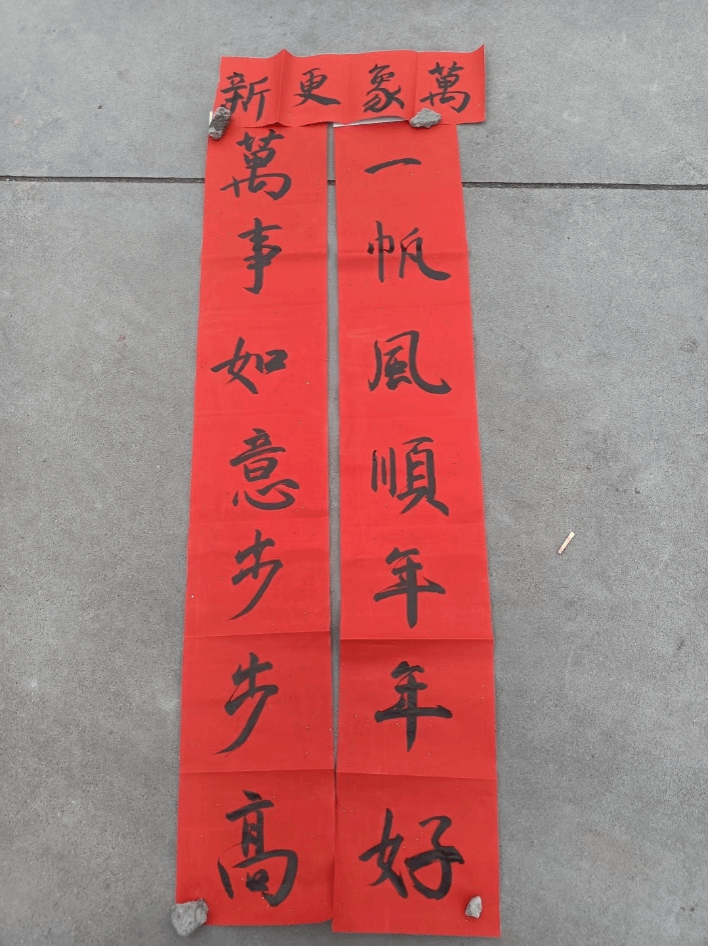 萬象更新
一帆風順年年好
萬事如意步步高